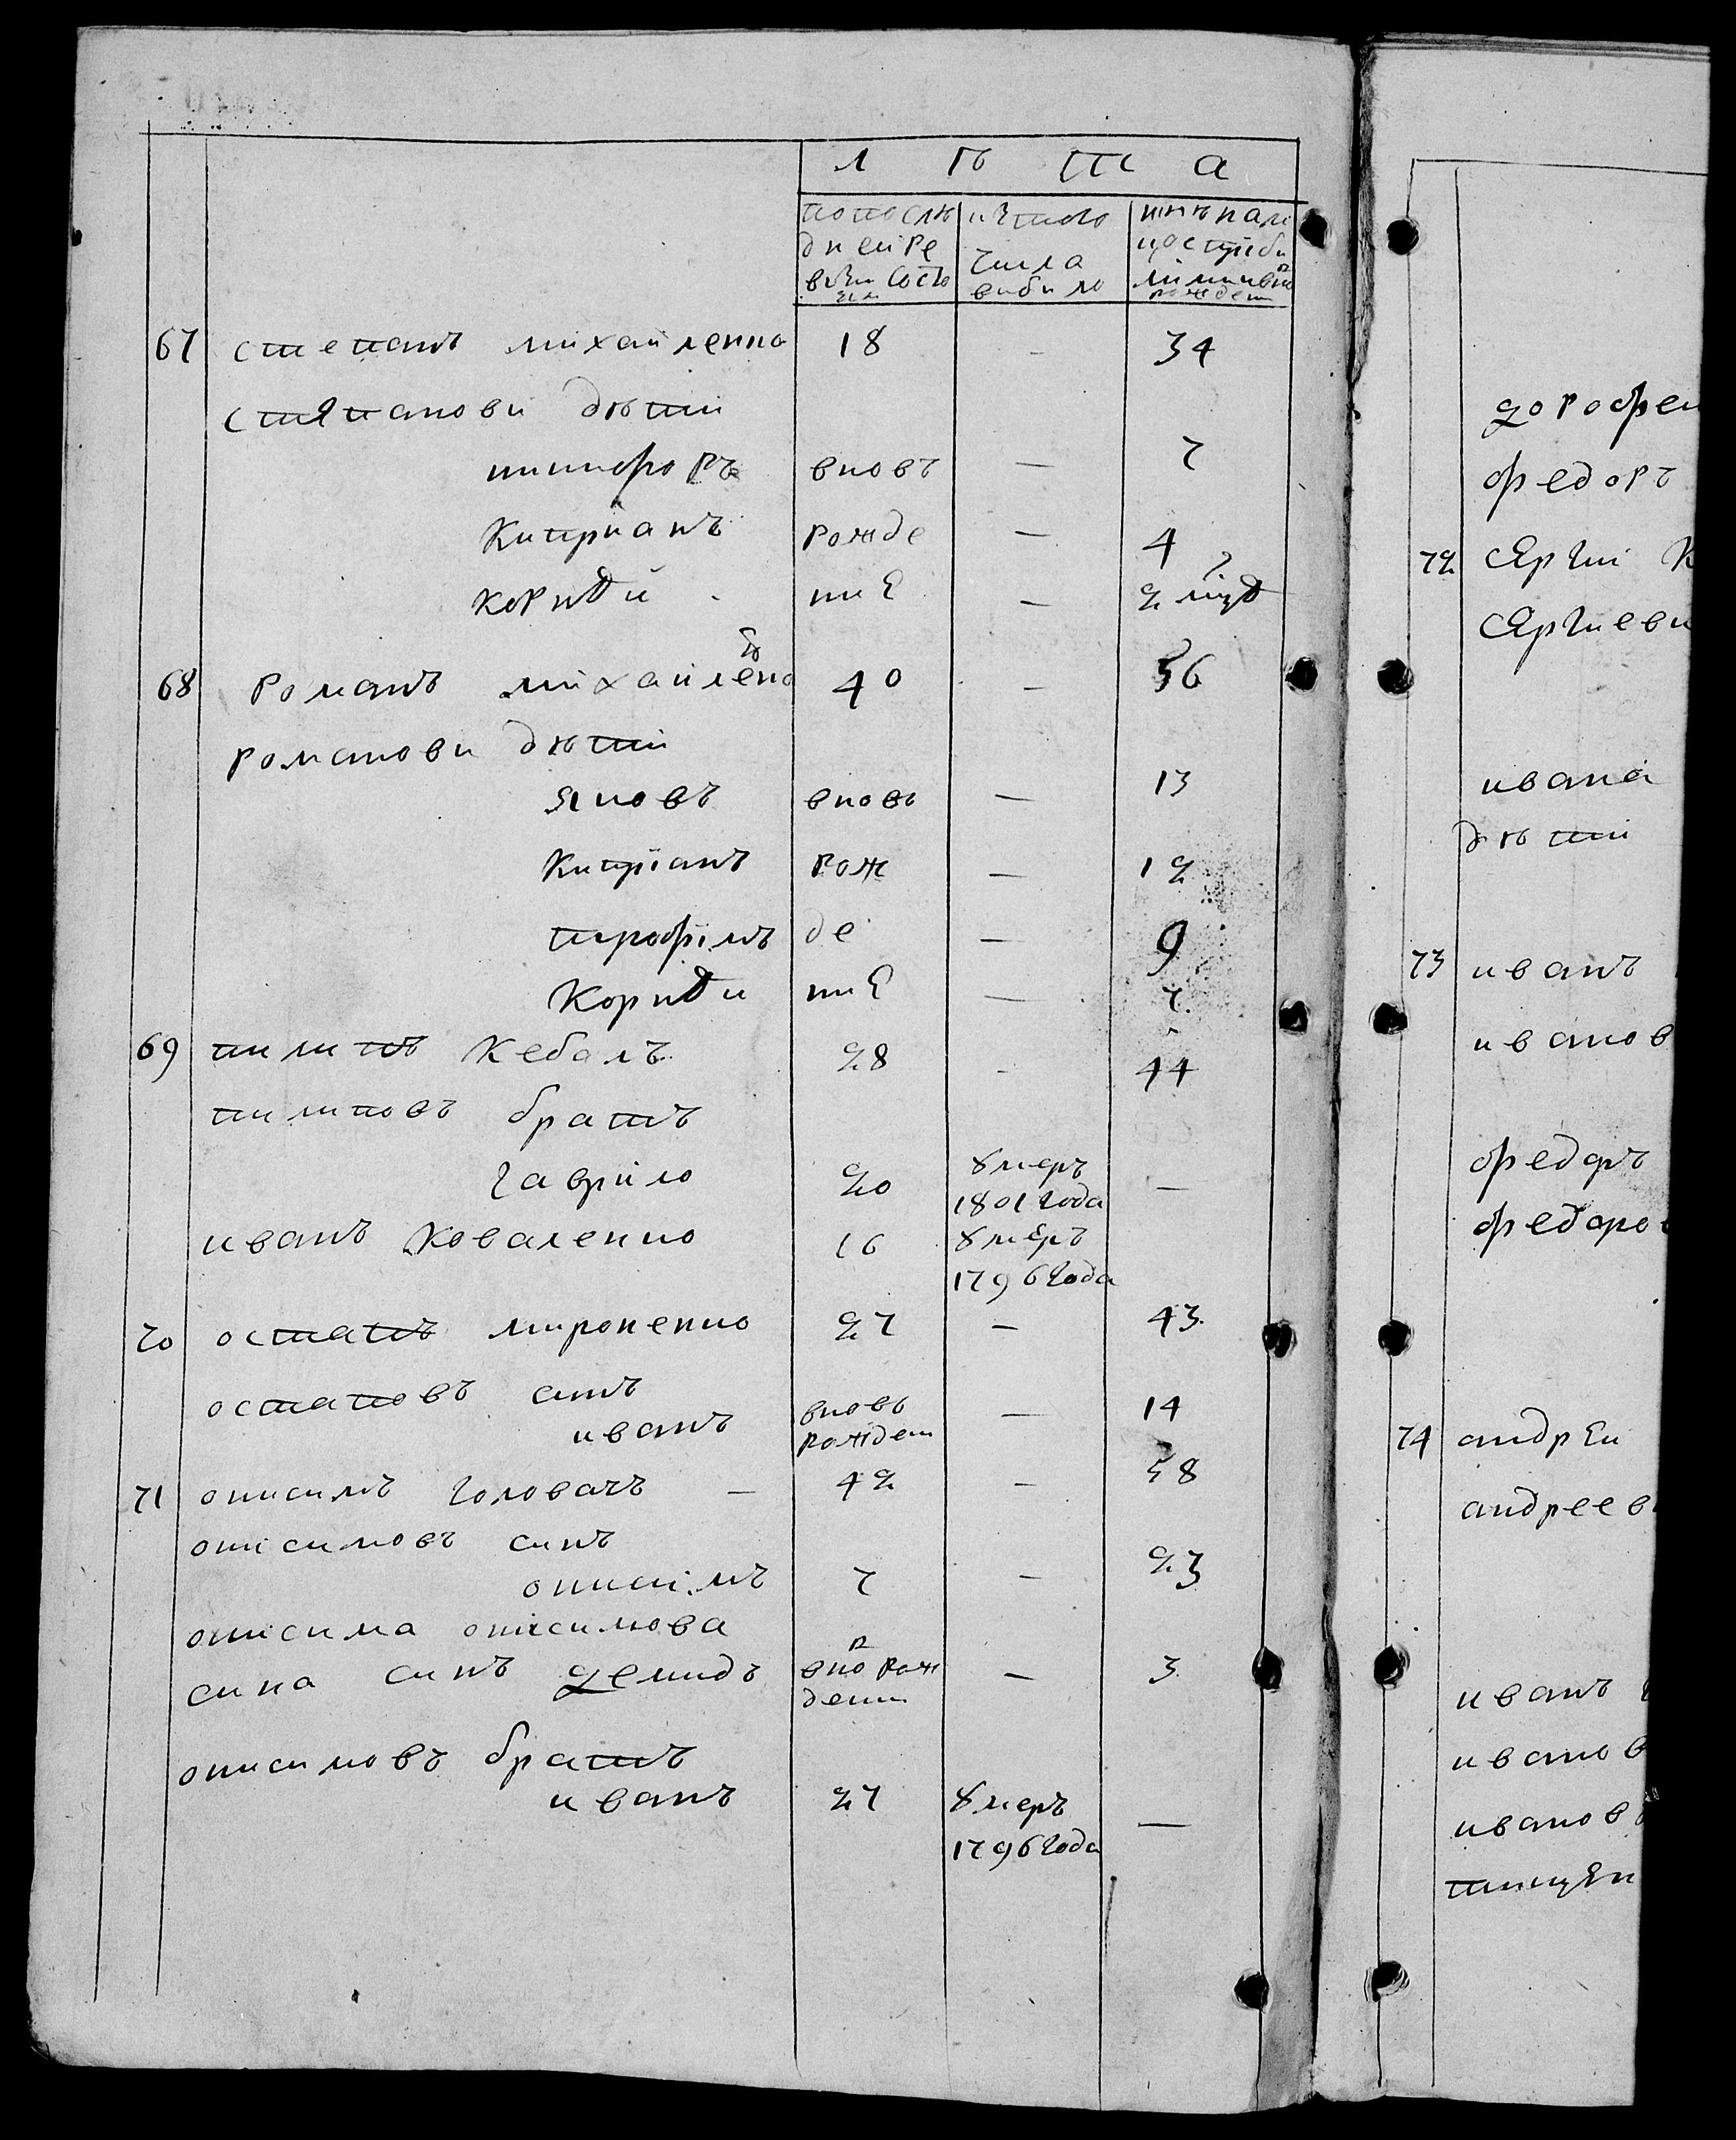 л ѣ т а
попослѣ изтого
днейре числа
визи состо вибило
67 степанъ михайленко 18 — 34
стяпанови дѣти
никифоръ вновъ — 7
Киприанъ рожде — 4
Корнѣй ниЕ — 2
68 романъ михайленко 40 — 56
романови дѣти
яковъ вновъ — 13
Кипріанъ рож — 12
трофімъ де — 9
Корнѣи ниЕ — 7
69 пилипъ Кебалъ 28 — 44
пилиповъ братъ
гаврило 20 умеръ 1801 года —
иванъ Коваленко 16 умеръ
1796 года
70 остапъ мироненко 27 — 43
остаповъ синъ
иванъ вновъ рожден — 14
71 онисимъ головачъ — 42 — 58
онисимовъ синъ
онисимъ 7 — 23
онисима онисимова
сина синъ демидъ внов рож дени — 3
онисимовъ братъ
иванъ 27 умеръ —
1796 года
дорофеи
федоръ
72 сЯргии К
сЯргиеви
ивана
дѣти
73 иванъ
иванов
федоръ
федоров
74 андрЕи
андреев
иванъ
иванов
иванов